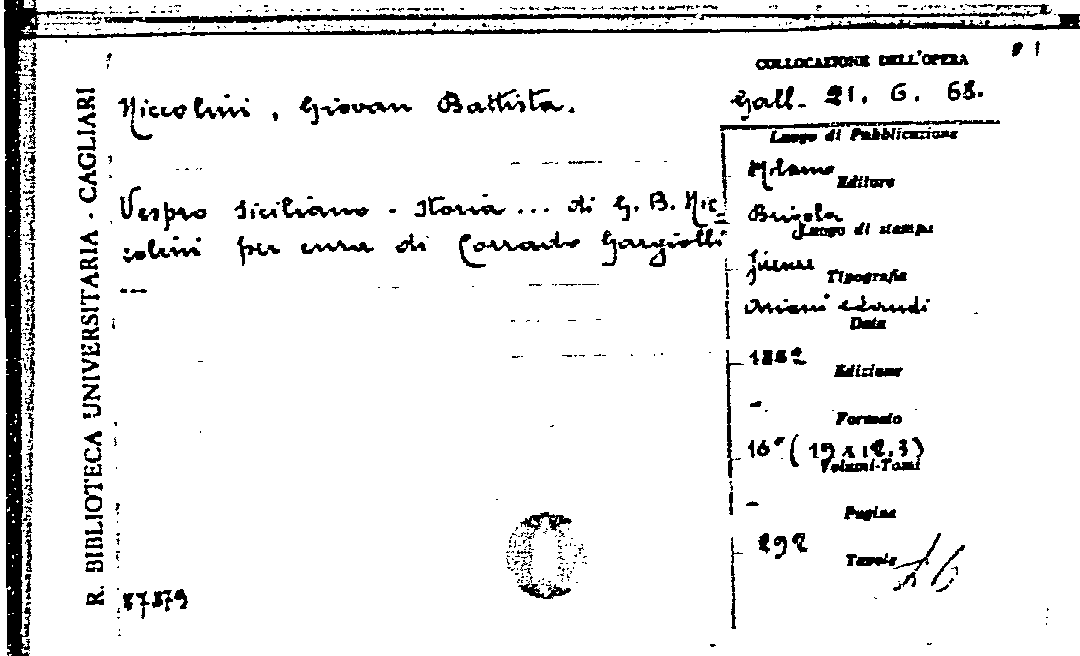 R. BIBLIOTECA UNIVERSITARIA - CAGLIARI
COLLOCAZIONE DELL'OPERA
Gall. 21. 6. 68.
Niccolini, Giovan Battista.
Vespro Siciliano - Storia ... di G. B. Nic=
colini per cura di Corrado Gargiolli
---
Luogo di Pubblicazione
Milano
Editore
Brigola
Luogo di stampa
Firenze
Tipografia
Mariani
Data
1882
Edizione
-
Formato
16° (19 x 12,3)
Volumi-Tomi
-
Pagine
292
Tavole
87879